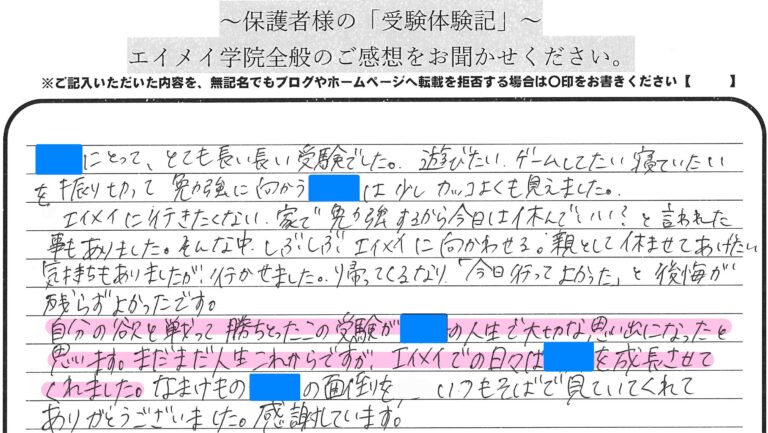 ～保護者様の「受験体験記」～
エイメイ学院全般のご感想をお聞かせください。
※ご記入いただいた内容を、無記名でもブログやホームページへ転載を拒否する場合は〇印をお書きください【　　】
にとって、とても長い長い受験でした。遊びたい、ゲームしてたい寝ていたい
を振り切って勉強に向かう は少しカッコよくも見えました。
エイメイに行きたくない、家で勉強するから今日は休んでいい？と言われた
事もありました。そんな中、しぶしぶエイメイに向かわせる。親として休ませてあげたい
気持ちもありましたが、行かせました。帰ってくるなり「今日行ってよかった」と後悔が
残らずよかったです。
自分の欲と戦って勝ちとったこの受験が の人生で大切な思い出になったと
思います。まだまだ人生これからですが、エイメイでの日々は を成長させて
くれました。なまけもの の面倒を、、いつもそばで見ていてくれて
ありがとうございました。感謝しています。